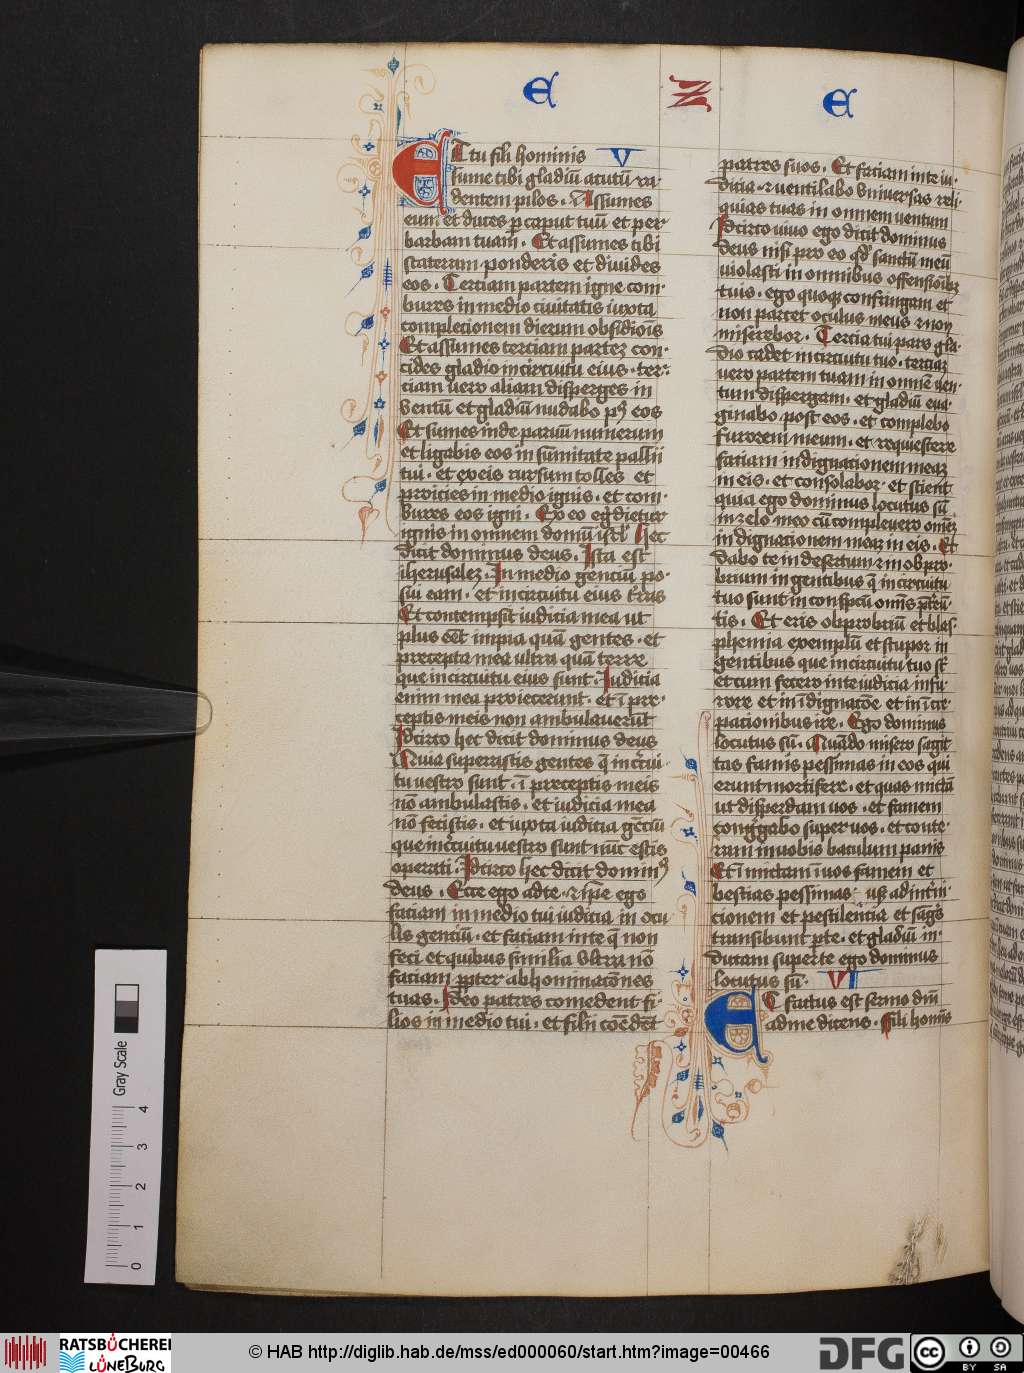 E Z E
Et tu fili hominis V
sume tibi gladiū acutū ra
dentem pilos . Assumes
eum et duces p caput tuū et per
barbam tuam . Et assumes tibi
stateram ponderis et diuides
eos . Terciam partem igne com⸗
bures in medio ciuitatis iuxta
completionem dierum obsidiois
Et assumes terciam partez con⸗
cides gladio in circuitu eius . ter⸗
ciam uero aliam disperges in
ventū et gladiū nudabo pꝰ eos
Et sumes inde paruū numerum
et ligabis eos in sūmitate pallii
tui . et ex eis rursum tolles et
proicies in medio ignis . et com⸗
bures eos igni . Ex eo egdietur
ignis in omnem domū isrl Hec
dicit dominus deus . Ista est
iherusalez . In medio genciū po⸗
sui eam . et in circuitu eius t'ras
Et contempsit iudicia mea ut
plus eēt impia quā gentes . et
precepta mea ultra quā terre
que in circuitu eius sunt . Iudicia
enim mea proiecerunt . et ī pre⸗
ceptis meis non ambulauerūt
Idcirco hec dicit dominus deus
Quia superastis gentes q̄ in circui
tu vestro sunt . ī preceptis meis
nō ambulastis . et iudicia mea
nō fecistis . et iuxta iudicia gēciū
que in circuitu vestro sunt nūc estis
operati . Idcirco hec dicit dominꝰ
deus . Ecce ego ad te . ⁊ ip̄e ego
faciam in medio tui iudicia in ocu
lis genciū . et faciam in te q̄ non
feci et quibus similia vltra nō
faciam ppter abhominacōnes
tuas . Ideo patres comedent fi⸗
lios in medio tui . et filii cōedēt
patres suos . Et faciam in te iu⸗
dicia . ⁊ uentilabo vniuersas reli⸗
quias tuas in omnem uentum
Idcirco uiuo ego dicit dominus
deus nisi pro eo qd' sanctū meū
uiolasti in omnibus offensioībz
tuis . ego quoqz confringam et
non parcet oculus meus ⁊ non
miserebor . Tercia tui pars gla⸗
dio cadet in circuitu tuo . terciaz
uero partem tuam in omnē uen⸗
tum dispergam . et gladiū eua⸗
ginabo post eos . et complebo
furorem meum . et requiescere
faciam indignacionem meaz
in eis . et consolabor . et scient
quia ego dominus locutus sū
in zelo meo cū compleuero omēz
indignacionem meaz in eis . Et
dabo te in desertum ⁊ in obpro⸗
brium in gentibus q̄ in circuitu
tuo sunt in conspcū omīs p̄tēū⸗
tis . Et eris obprobriū et blas⸗
phemia exemplū et stupor in
gentibus que in circuitu tuo st̄
et cum fecero in te iudicia in fu⸗
rore et in īdignacōe et in īcre⸗
pacionibus ire . Ego dominus
locutus sū . Quādo misero sagit
tas famis pessimas in eos qui
erunt mortifere . et quas mictā
ut disperdam uos . et famem
congregabo super uos . et conte⸗
ram in uobis baculum panis
Et īmictam ī uos famem et
bestias pessimas usqz ad int'ni⸗
cionem et pestilencia et sāgs
transibunt p te . et gladiū in⸗
ducam super te ego dominus
locutus sū . VI
Et factus est sermo dnī
ad me dicens . Fili homīs
Gray Scale
4 3 2 1 0
RATSBÜCHEREI LÜNEBURG
© HAB http://diglib.hab.de/mss/ed000060/start.htm?image=00466
DFG
cc BY SA